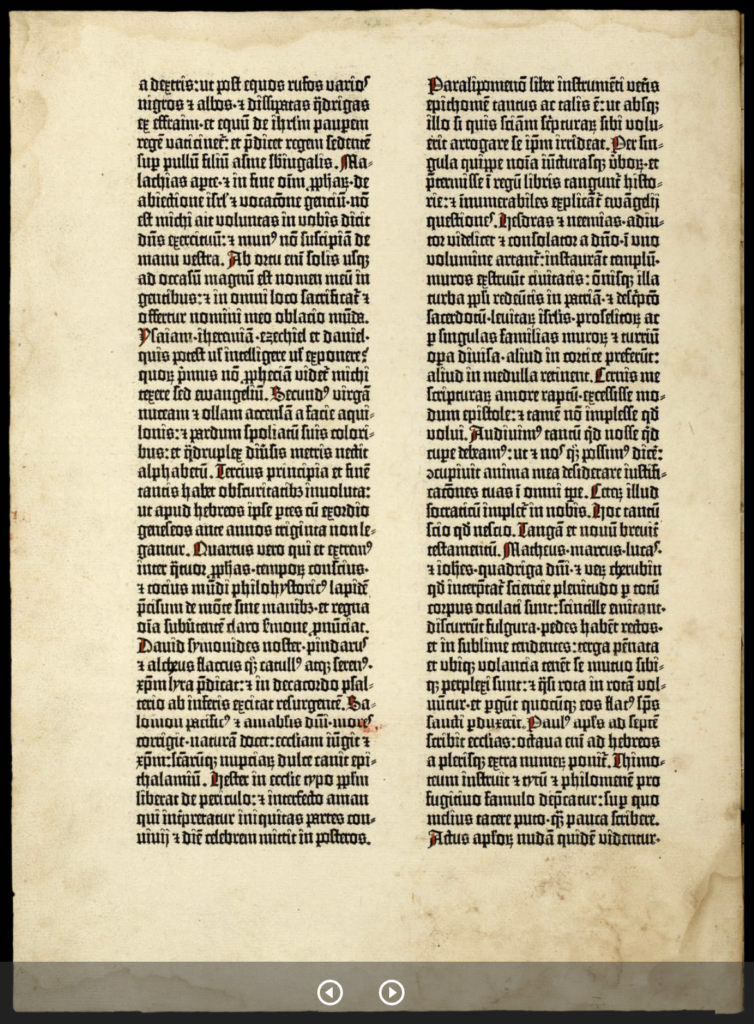 a dextris: ut post equos rufos varioꝰ
nigros ⁊ albos· ⁊ dissipatas q̈drigas
ex effraim· et equū de ihrlm̄ pauperem
regē vaticinet᷑: et p̄dicet regem sedentē
sup pullū filiū asine sbiugalis. Ma-
lachias apte· ⁊ in fine om̄ ꝓphaꝝ· de
abiectione isrl̓ ⁊ vocacōne genciū· nō
est michi ait voluntas in vobis dicit
dn̄s exercituū: ⁊ munꝰ nō suscipiā de
manu vestra. Ab ortu eni̅ solis usqꝫ
ad occasū magnū est nomen meū in
gentibus: ⁊ in omni loco sacrificat᷑ ⁊
offertur nomini meo oblacio mūda.
Ysaiam· iheremiā· ezechiel et daniel·
quis potest ul̓ intelligere ul̓ exponere?
quoꝝ p̄mus nō ꝓpheciā videt᷑ michi
texere sed ewangeliū. Secundꝰ virgā
nuceam ⁊ ollam accensā a facie aqui-
lonis: ⁊ pardum spoliatū suis colori-
bus: et q̈druplex diūsis metris nectit
alphabetū. Tercius principia et finē
tantis habet obscuritatibꝫ involuta:
ut apud hebreos ipse ptes cū exordio
geneseos ante annos triginta non le-
gantur. Quartus vero qui et extremꝰ
inter q̈tuor ꝓphas· tempoꝝ conscius·
⁊ tocius mūdi philohystoricꝰ lapidē
p̄cisum de mōte sine manibꝫ· et regna
oīa subūtentē claro s̄mone ꝓnūciat.
David symonides noster· pindarꝰ
⁊ alcheus flaccus qꝫ catullꝰ atqꝫ serenꝰ·
xp̄m lyra p̄dicat: ⁊ in decacordo psal-
terio ab inferis excitat resurgentē. Sa-
lomon pacificꝰ ⁊ amabilis dn̄i· mores
corrigit· naturā docet: ecclesiam iūgit ⁊
xp̄m: scāꝝqꝫ nupciaꝝ dulce canit epi-
thalamiū. Hester in ecclesie typo ppl̄m
liberat de periculo: ⁊ interfecto aman
qui int̄pretatur iniquitas partes con-
vivij ⁊ diē celebrem mittit in posteros.
Paralipomenō liber instrumēti vet̓is
epithomē tantus ac talis ē: ut absqꝫ
illo si quis sciām sc̓pturaꝝ sibi volu-
erit arrogare se ip̄m irrideat. Per sin-
gula quippe noīa iūcturasqꝫ ūboꝝ· et
p̄termisse ī regū libris tangunt᷑ histo-
rie: ⁊ innumerabiles explicant᷑ ewangelij
questiones. Hesdras ⁊ neemias· adiu-
tor videlicet ⁊ consolator a dn̄o· ī uno
volumine artant᷑: instaurāt templū·
muros exstruūt civitatis: ōnisqꝫ illa
turba ppl̄i redeūtis in patriā· ⁊ desc̓pcō
sacerdotū· levitaꝝ isrl̓is· proselitoꝝ ac
ꝑ singulas familias muroꝝ ⁊ turriū
opa divisa· aliud in cortice preferūt:
aliud in medulla retinent. Cernis me
scripturaꝝ amore raptū· excessisse mo-
dum epistole: ⁊ tamē nō implesse qd̄
volui. Audivimꝰ tantū qd̄ nosse qd̄
cupe debeamꝰ: ut ⁊ nos qꝫ possimꝰ dicē:
ↄcupivit anima mea desiderare iustifi-
catōnes tuas ī omni tpe. Ceteꝝ illud
socraticū implet᷑ in nobis. Hoc tantū
scio qd̄ nescio. Tangā et novū brevit̓
testamentū. Matheus· marcus· lucas·
⁊ iohēs· quadriga dn̄i· ⁊ veꝝ cherubin
qd̄ interp̄tat᷑ sciencie plenitudo ꝑ totū
corpus oculati sunt: scintille emicant·
discurrūt fulgura· pedes habēt rectos·
et in sublime tendentes: terga pēnata
et ubiqꝫ volancia tenēt se mutuo sibi-
qꝫ perplexi sunt: ⁊ q̈si rota in rotā vol-
vūtur· et ꝑgūt quocūqꝫ eos flatꝰ sp̄s
sancti ꝑduxerit. Paulꝰ apl̓s ad septē
scribit ecclesias: octava eni̅ ad hebreos
a plerisqꝫ extra numeꝝ ponit᷑. Thimo-
teum instruit ⁊ tytū ⁊ philomenē pro
fugitivo famulo dep̄catur: sup quo
melius tacere puto· qꝫ pauca scribere.
Actus apl̓oꝝ nudā quidē videntur·